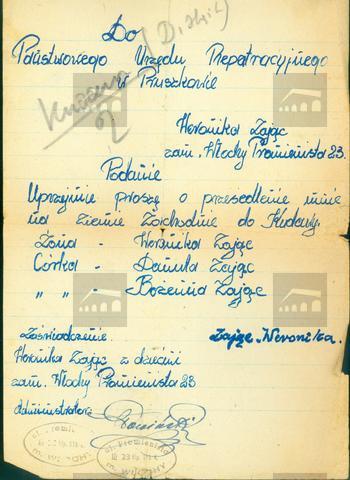 Do
Państwowego Urzędu Repatracyjnego
w Pruszkowie
Weronika Zając
zam. Włochy Promienista 23.
Podanie
Uprzejmie proszę o przesedlenie mnie
na ziemie Zachodnie do Kudawy.
Żona - Weronika Zając
Córka - Danuta Zając
„ „ - Bożenna Zając
Zając Weronika.
Zaświadczenie
Weronika Zając z dziećmi
zam. Włochy Promienista 23
Administrator